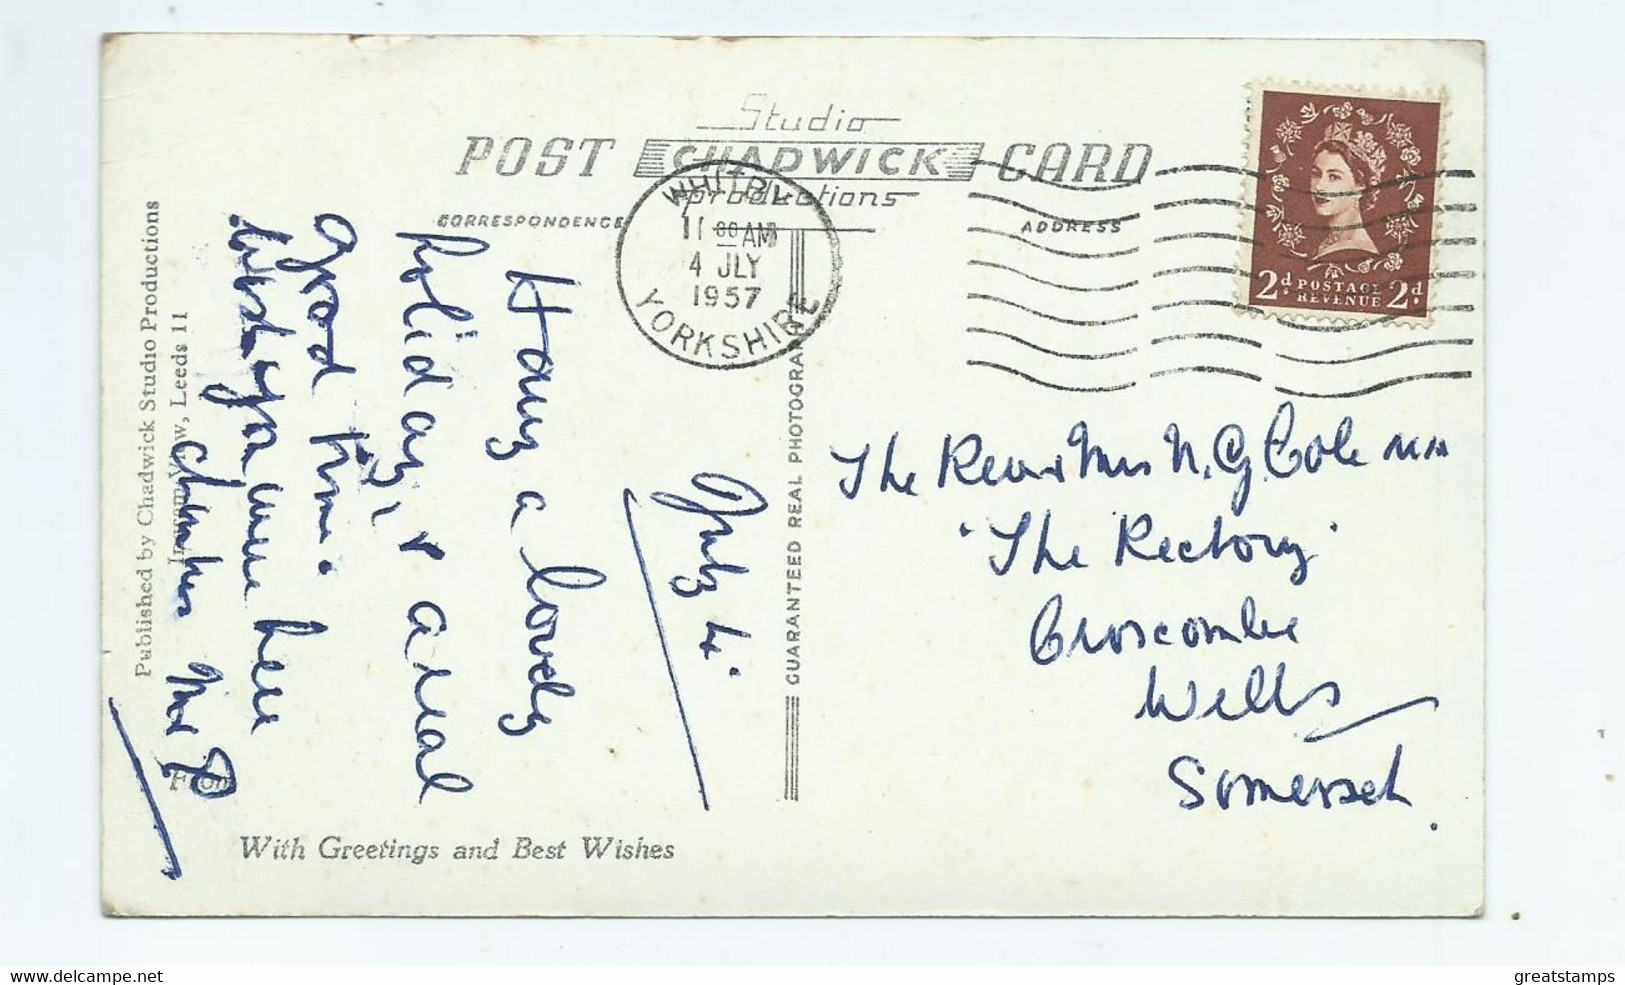 Studio
POST CHADWICK CARD
productions
CORRESPONDENCE
ADDRESS
WHITBY
11 30 AM
4 JLY
1957
YORKSHIRE
2d POSTAGE 2d
REVENUE
GUARANTEED REAL PHOTOGRAPH
July 4.
Havg a lovely
holiday, & a real
good time.
Wish you were here
Published by Chadwick Studio Productions
View, Leeds 11
From
With Greetings and Best Wishes
The Rev & Mrs N. G. Cole
"The Rectory"
Croscombe
Wells
Somerset.
greatstamps
www.delcampe.net